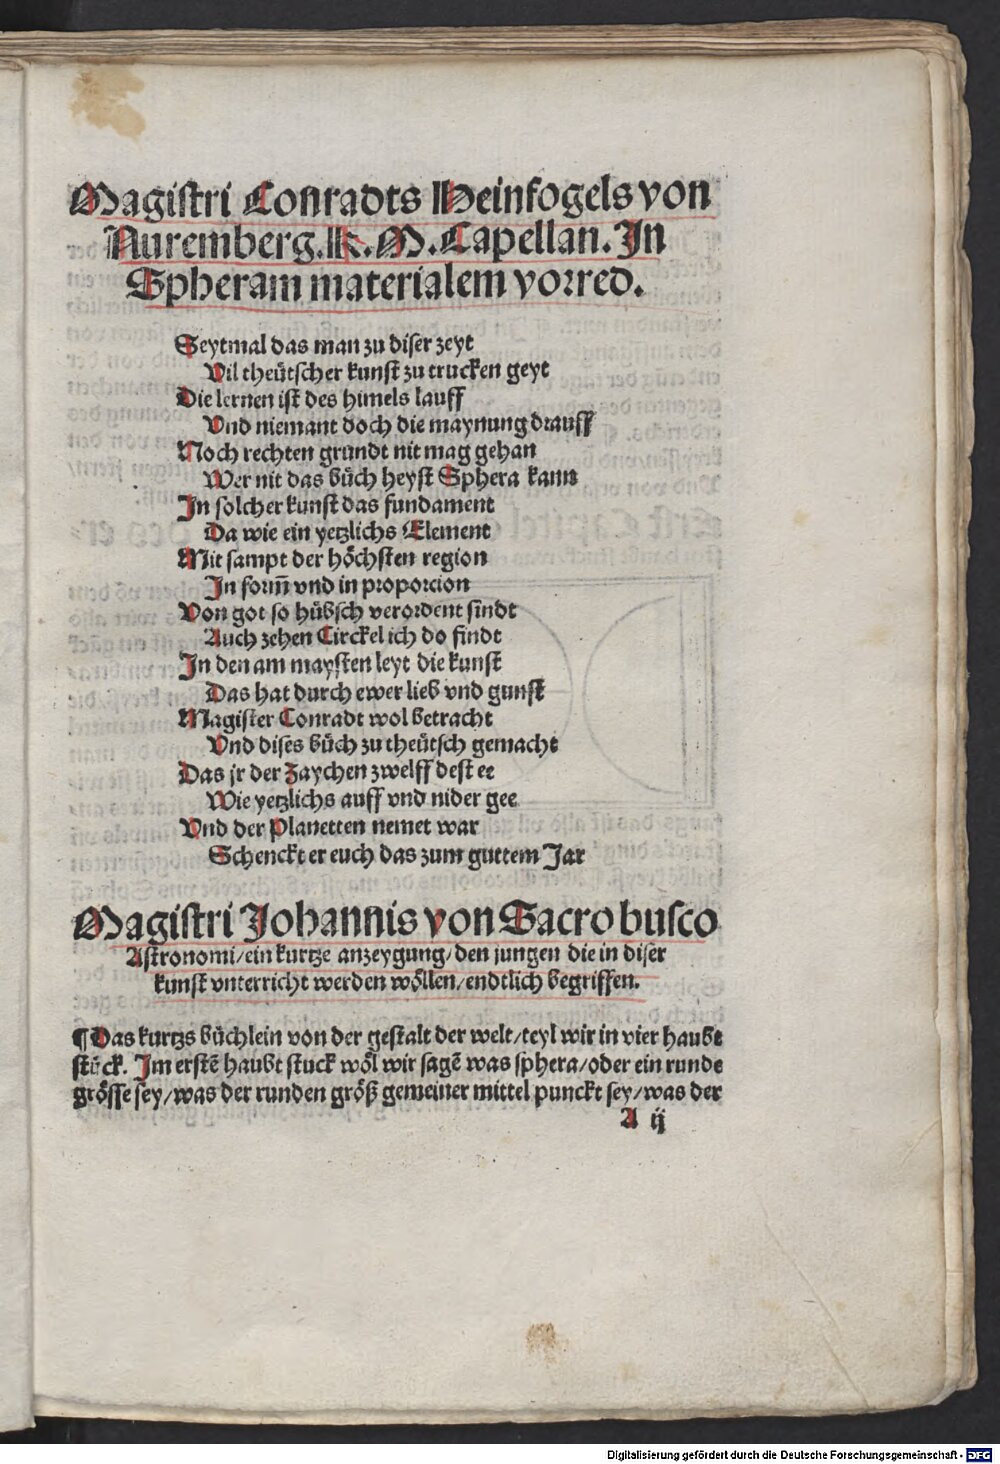 Magistri Conradts Heinfogels von
Nuremberg. K. M. Capellan. In
Spheram materialem vorred.
Seytmal das man zu diser zeyt
Vil theütscher kunst zu trucken geyt
Die lernen ist des himels lauff
Vnd niemant doch die maynung drauff
Noch rechten grundt nit mag gehan
Wer nit das bůch heyst Sphera kann
In solcher kunst das fundament
Da wie ein yetzlichs Element
Mit sampt der höchsten region
In form̄ vnd in proporcion
Von got so hübsch verordent sindt
Auch zehen Circkel ich do findt
In den am maysten leyt die kunst
Das hat durch ewer lieb vnd gunst
Magister Conradt wol betracht
Vnd dises bůch zu theütsch gemacht
Das jr der Zaychen zwelff dest ee
Wie yetzlichs auff vnd nider gee
Vnd der Planetten nemet war
Schenckt er euch das zum guttem Jar
Magistri Johannis von Sacro busco
Astronomi/ ein kurtze anzeygung/ den jungen die in diser
kunst vnterricht werden wöllen/ endtlich begriffen.
¶ Das kurtzs bůchlein von der gestalt der welt/ teyl wir in vier haubt
stůck. Im erstē haubt stuck wöl wir sagē was sphera/ oder ein runde
grösse sey/ was der runden größ gemeiner mittel punckt sey/ was der
A ij
Digitalisierung gefördert durch die Deutsche Forschungsgemeinschaft - DFG